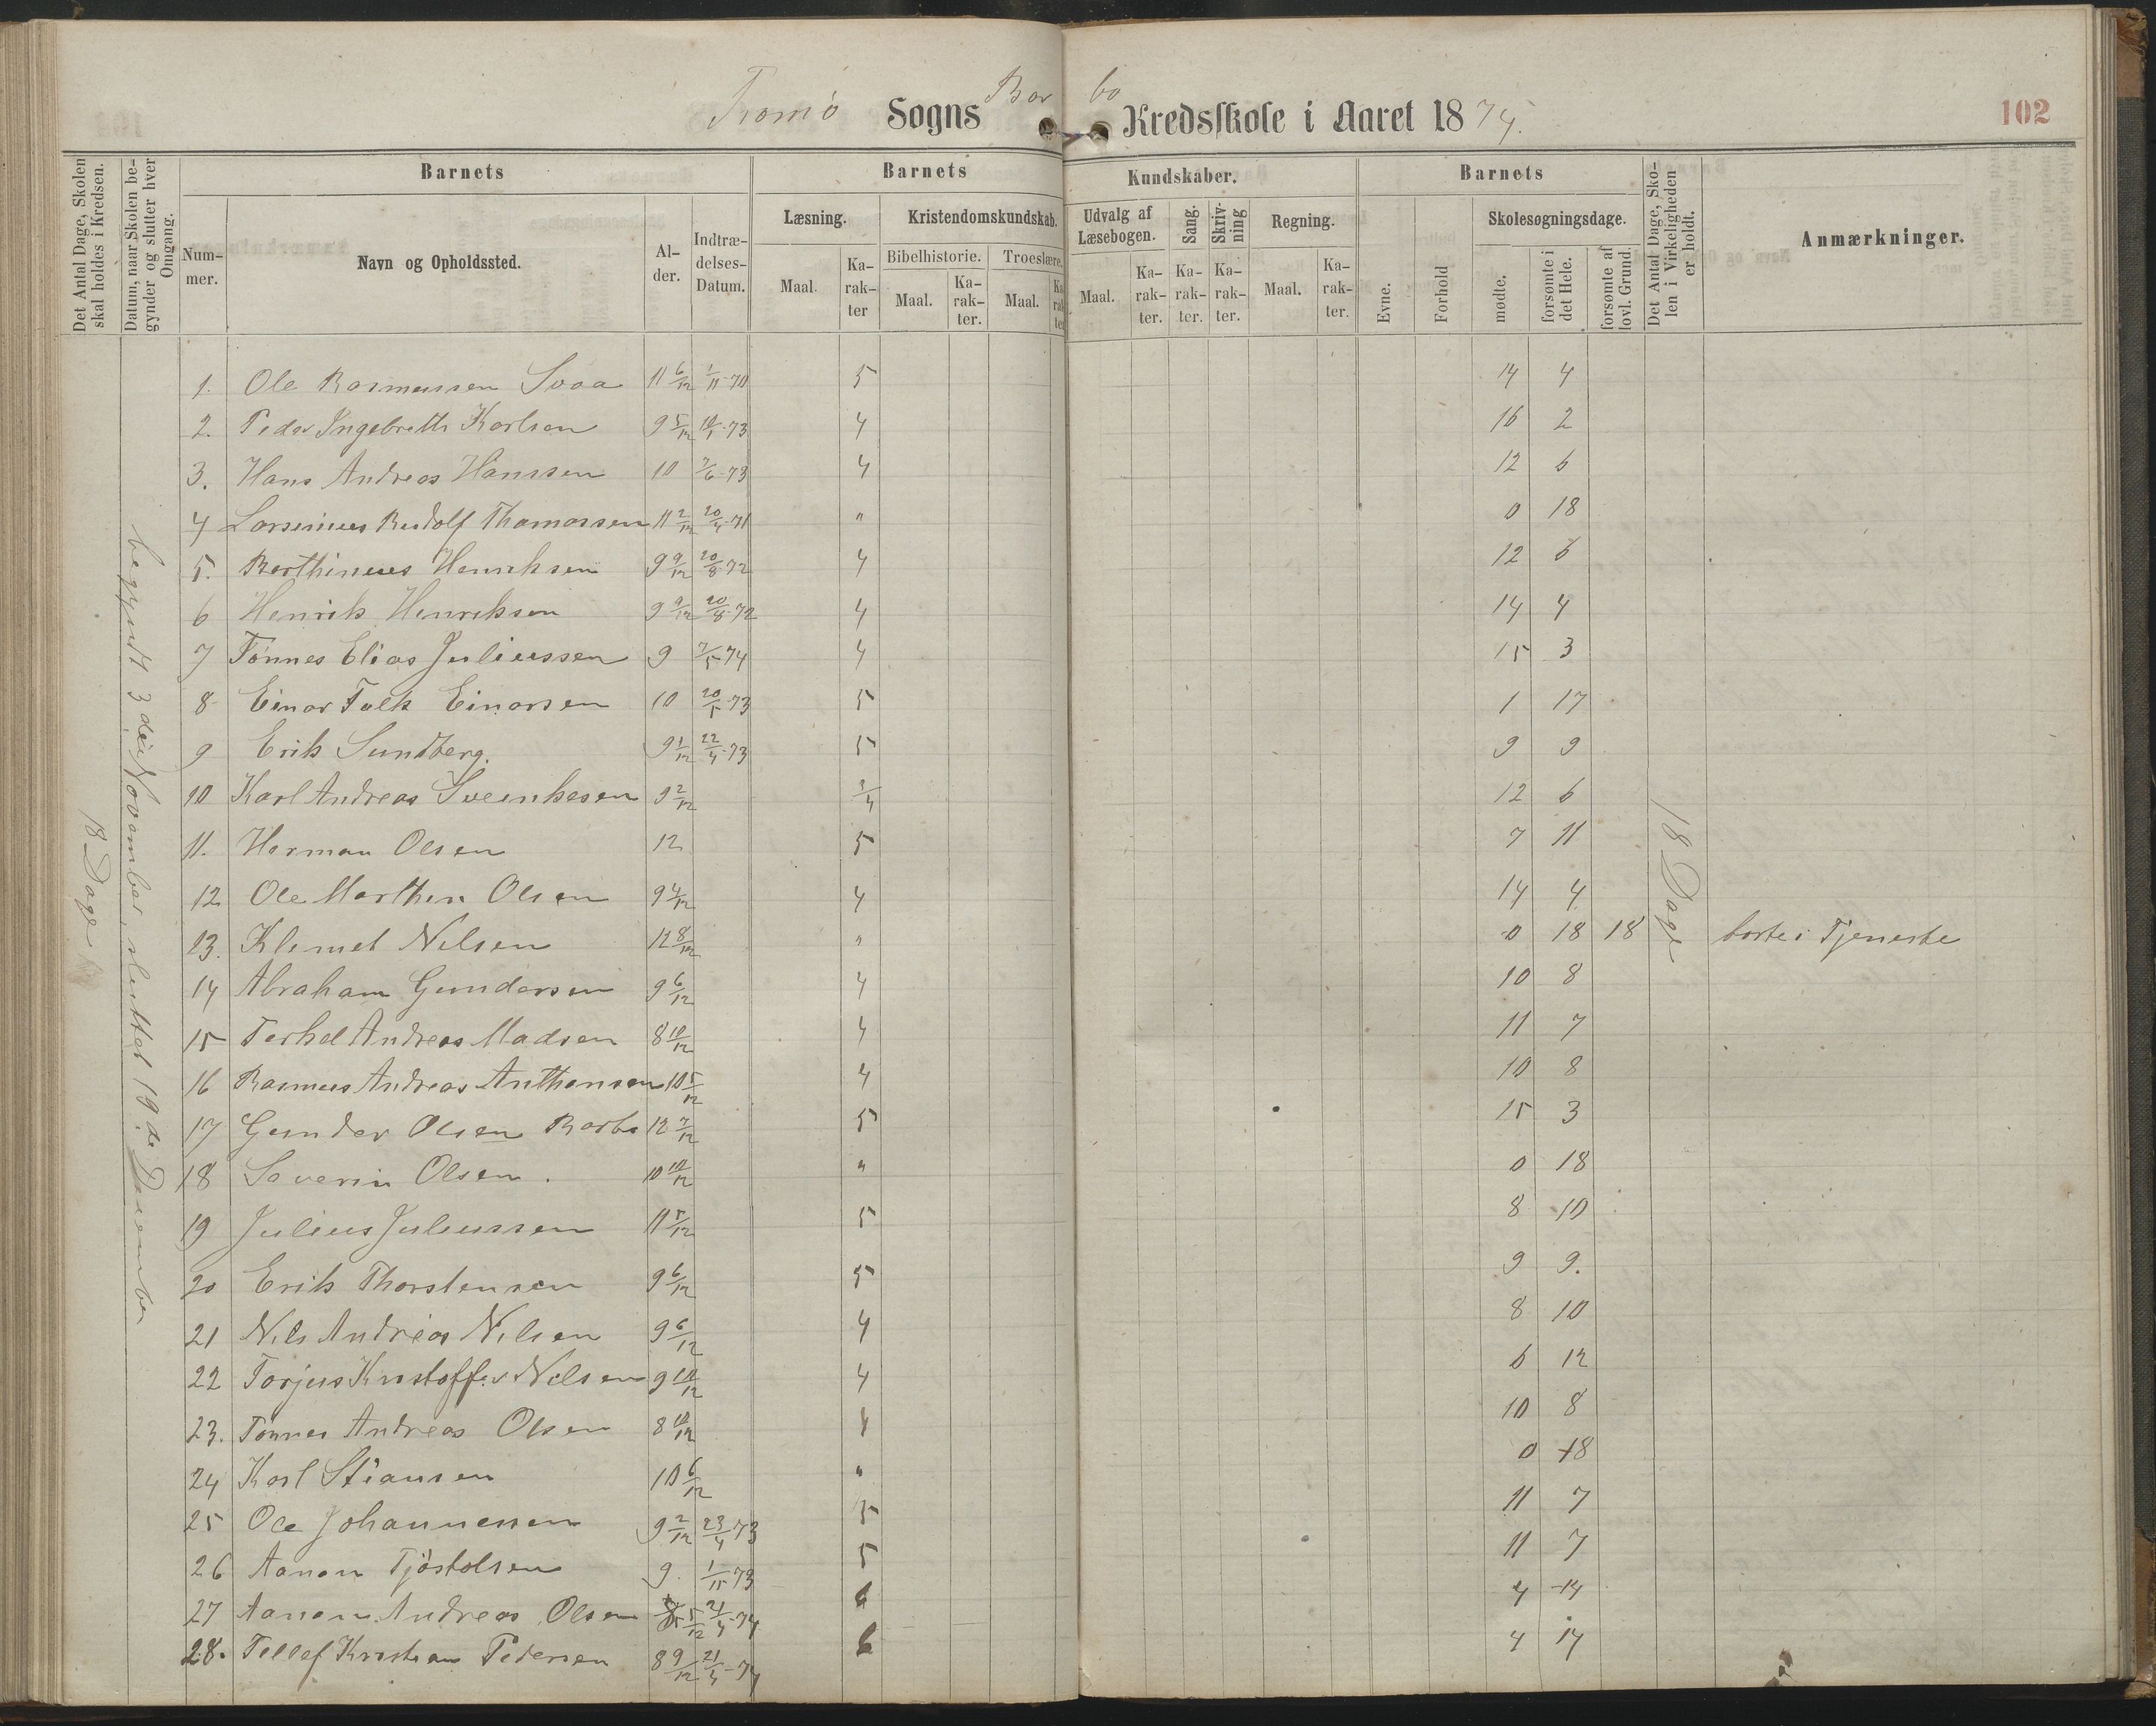 Tromø Sogns Barbo Kredsskole i Aaret 1874.
102
Det Antal Dage, Skolen skal holdes i Kredsen.
Datum, naar Skolen begynder og slutter hver Omgang.
Barnets
Barnets Kundskaber.
Barnets
Det Antal Dage, Skolen i Virkeligheden er holdt.
Anmærkninger.
Nummer.
Navn og Opholdssted.
Alder.
Indtrædelses-Datum.
Læsning.
Kristendomskundskab.
Udvalg af Læsebogen.
Sang.
Skrivning
Regning.
Skolesøgningsdage.
Bibelhistorie.
Troeslære.
Maal.
Karakter
Maal.
Karakter.
Maal.
Karakter
Maal.
Karakter.
Karakter.
Karakter.
Maal.
Karakter.
Evne.
Forhold
mødte.
forsømte i det Hele.
forsømte af lovl. Grund.
18 Dage
begyndt 3die November, sluttet 19.de December
18 Dage
1. Ole Rasmussen Svaa 11 6/12 1/11-70 5 14 4
2. Peder Ingebreth Karlsen 9 5/12 10/1-73 4 16 2
3. Hans Andreas Hanssen 10 7/6-73 4 12 6
4 Larsinius Rudolf Thomassen 11 2/12 20/4-71 " 0 18
5. Berthinius Henriksen 9 9/12 20/8-72 4 12 6
6 Henrik Henriksen 9 9/12 20/8-72 4 14 4
7 Tönnes Elias Juliussen 9 7/5-74 4 15 3
8 Einar Falk Einarsen 10 20/5-73 5 1 17
9 Erik Sundberg. 9 1/12 22/4-73 5 9 9
10 Karl Andreas Sveinkesen 9 2/12 3/4 12 6
11. Herman Olsen 12 5 7 11
12 Ole Marthin Olsen 9 4/12 4 14 4
13. Klemet Nelsen 12 8/12 " 0 18 18 borte i Tjeneste
14 Abraham Gundersen 9 6/12 4 10 8
15 Terkel Andreas Madsen 8 10/12 4 11 7
16 Rasmus Andreas Anthonsen 10 5/12 4 10 8
17 Gunder Olsen Barbo 12 7/12 5 15 3
18 Severin Olsen. 10 10/12 " 0 18
19 Julius Juliussen 11 5/12 5 8 10
20 Erik Thorstensen 9 6/12 5 9 9.
21 Nils Andreas Nilsen 9 6/12 4 8 10
22 Torjus Kristoffer Nilsen 9 10/12 4 6 12
23. Tönnes Andreas Olsen 8 10/12 4 10 8
24 Karl Stiansen 10 6/12 " 0 18
25 Ole Johannessen 9 2/12 23/4-73 5 11 7
26 Aanon Tjöstolsen 9. 1/11-73 5 11 7
27 Aanon Andreas Olsen 5/12 21/4-74 6 4 14
28. Tellef Kristian Pedersen 8 9/12 21/4-74 6 4 14